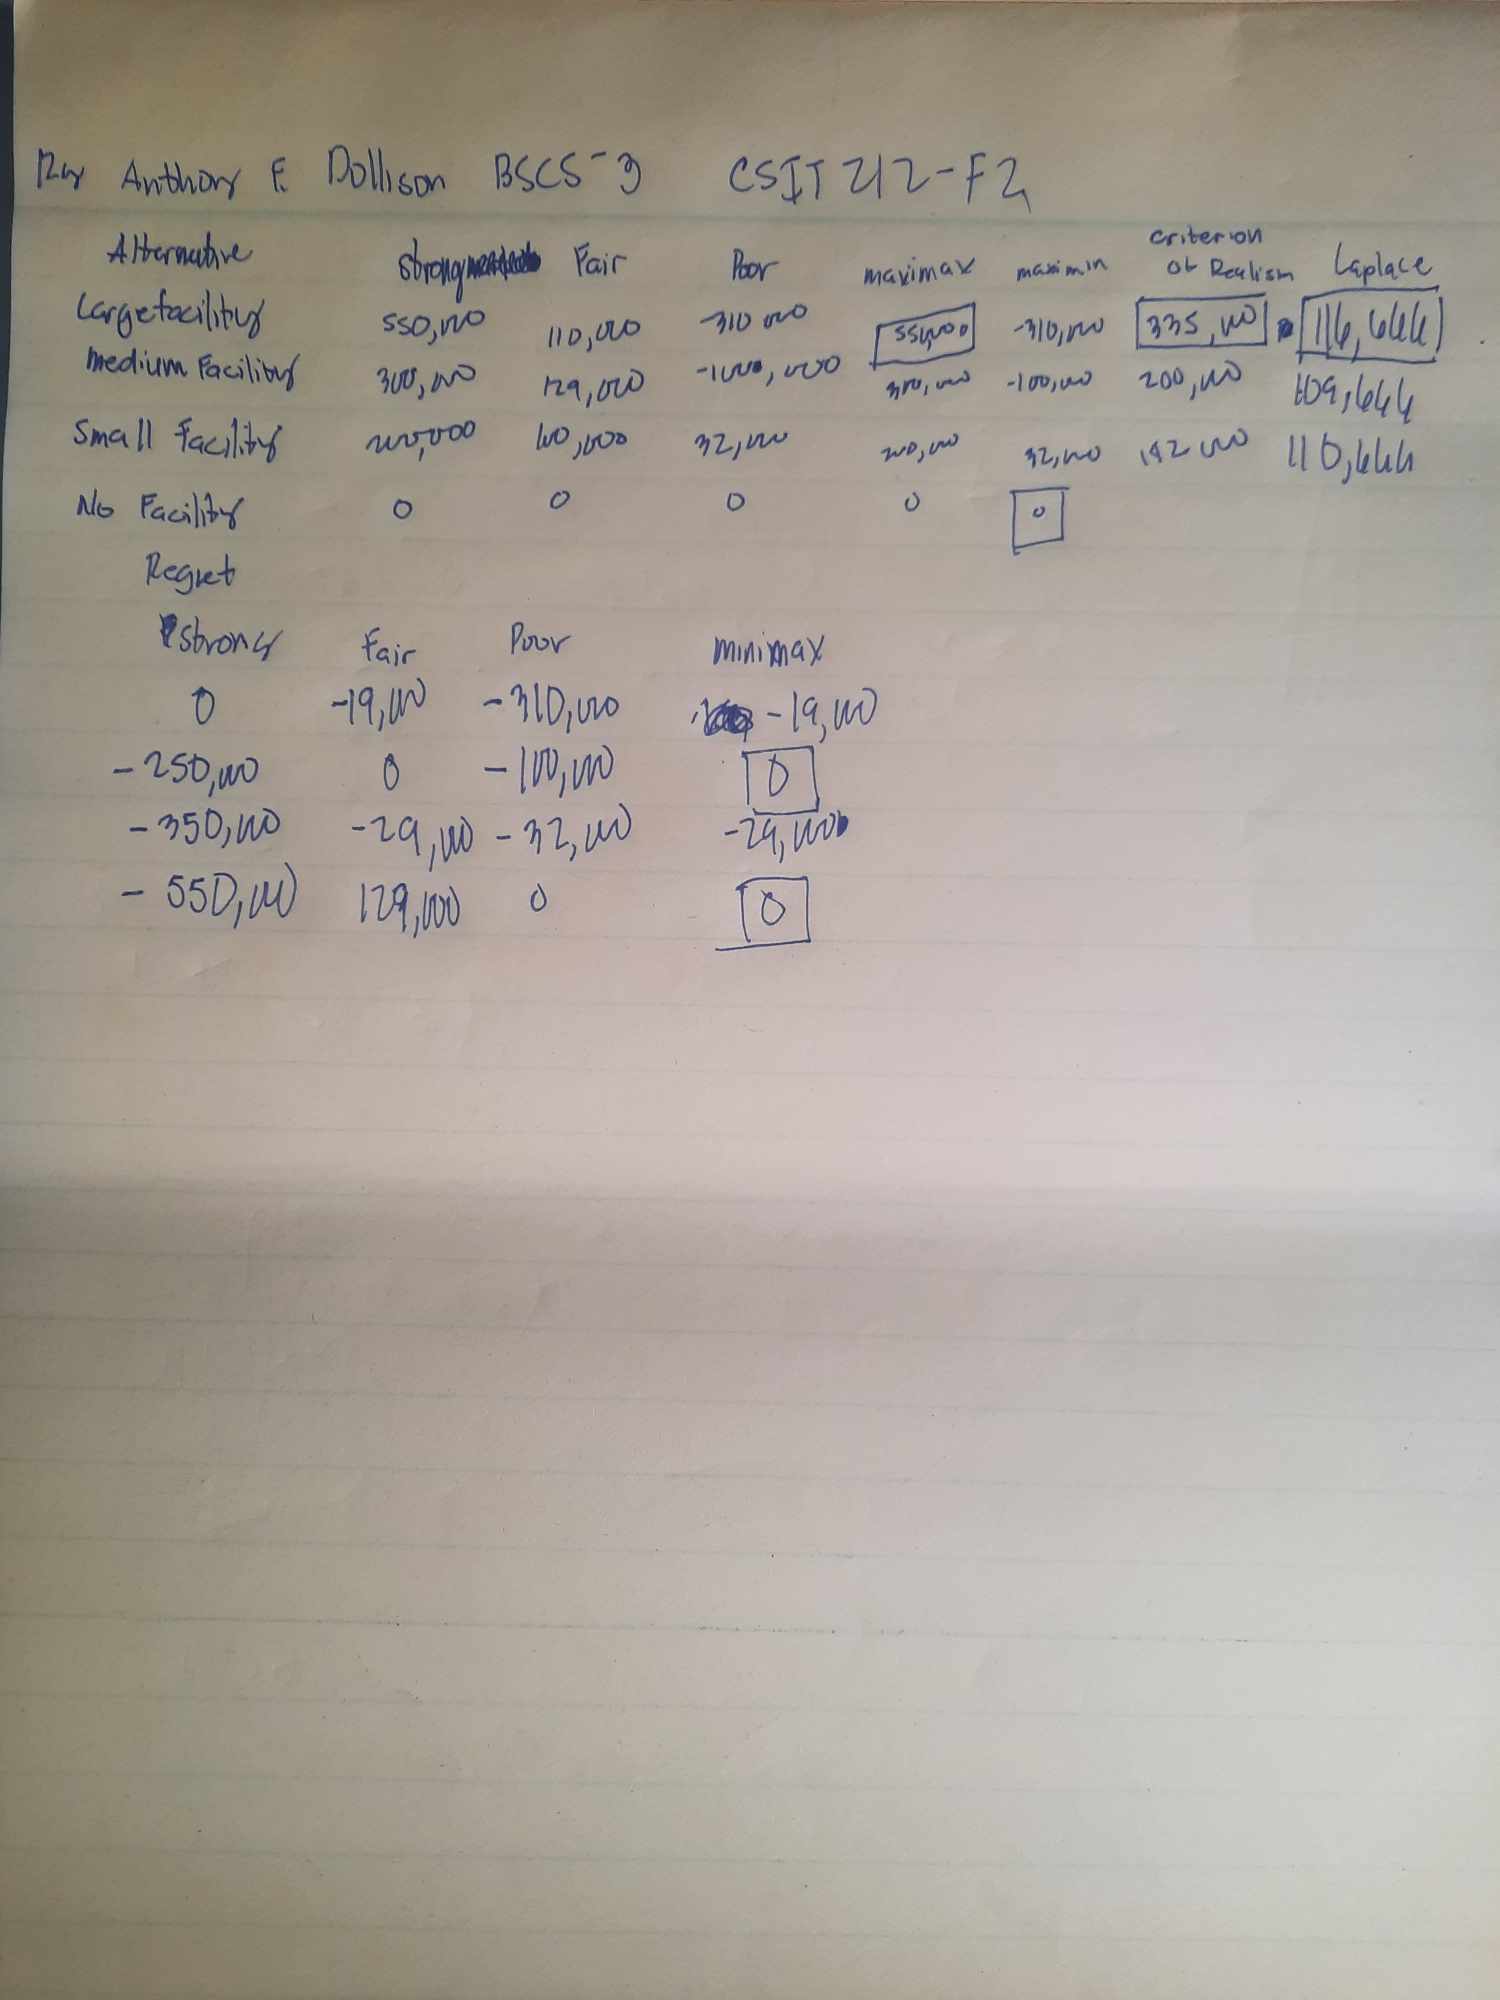 Anthony F. Dollison BSCS-3 CSIT 212-F2
Alternative Strong Fair Poor maximax maximin criterion of Realism Laplace
Large facility 550,000 110,000 -310 000 550,000 -310,000 335,000 116,666
Medium Facility 300,000 129,000 -1000,000 300,000 -100,000 200,000 109,666
Small Facility 200,000 100,000 32,000 200,000 32,000 142 000 110,666
No Facility 0 0 0 0 0
Regret
Strong Fair Poor minimax
0 -19,000 -310,000 -19,000
-250,000 0 -100,000 0
-350,000 -29,000 -32,000 -29,000
-550,000 129,000 0 0